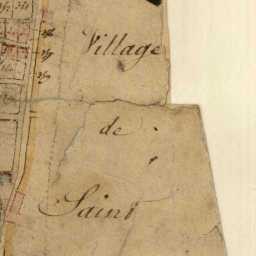 Village
de
Saint